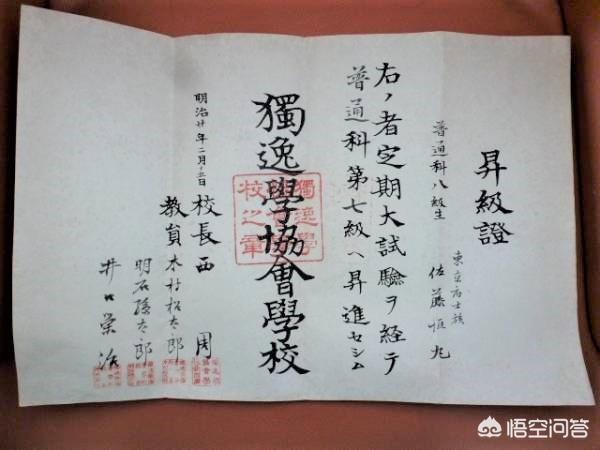 昇級證
東京府士族
普通科八級生 佐藤恒丸
右ノ者定期大試驗ヲ経テ
普通科第七級ヘ昇進セシム
獨逸學協會學校
獨逸學
校之章
明治廿年二月十五日 校長 西 周
教員 木村松太郎
明石孫太郎
井口榮治
悟空问答